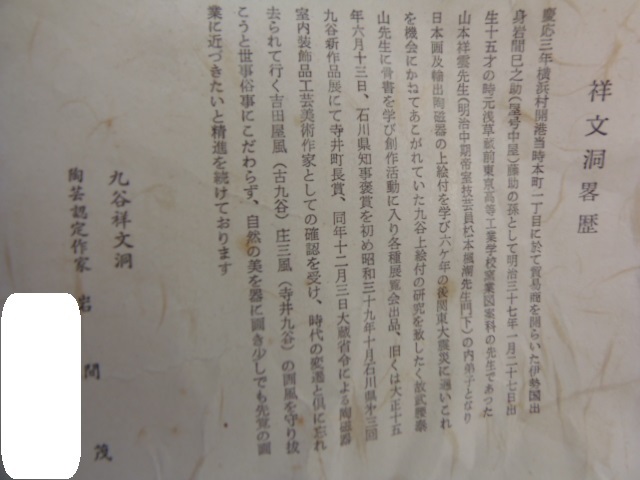 祥文洞畧歴
慶応三年横浜村開港当時本町一丁目に於て貿易商を開らいた伊勢国出
身岩間巳之助(屋号中屋)藤助の孫として明治三十七年一月二十七日出
生十五才の時元浅草蔵前東京高等工業学校窯業図案科の先生であった
山本祥雲先生(明治中期帝室技芸員松本楓湖先生門下)の内弟子となり
日本画及輸出陶磁器の上絵付を学び六ケ年の後関東大震災に遭いこれ
を機会にかねてあこがれていた九谷上絵付の研究を致したく故武腰泰
山先生に骨書を学び創作活動に入り各種展覧会出品、旧くは大正十五
年六月十三日、石川県知事褒賞を初め昭和三十九年十月石川県第三回
九谷新作品展にて寺井町長賞、同年十二月三日大蔵省令による陶磁器
室内装飾品工芸美術作家としての確認を受け、時代の変遷と倶に忘れ
去られて行く吉田屋風(古九谷)庄三風(寺井九谷)の画風を守り抜
こうと世事俗事にこだわらず、自然の美を器に画き少しでも先覚の画
業に近づきたいと精進を続けております
九谷祥文洞
陶芸認定作家 岩間茂